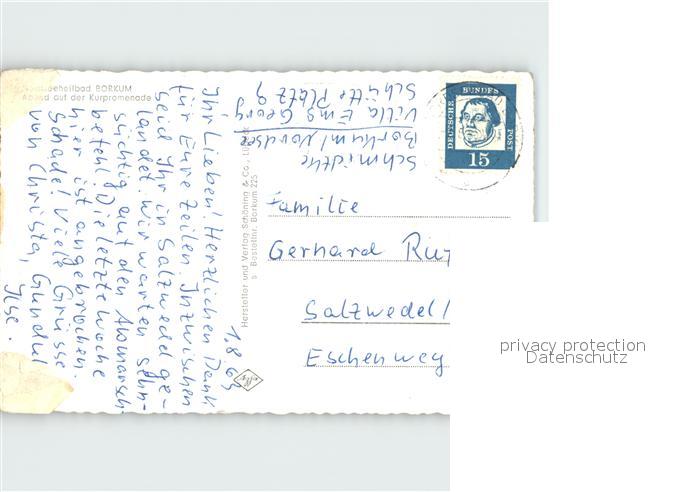 Nordseeheilbad BORKUM
Abend auf der Kurpromenade
1.8.63
Ihr Lieben! Herzlichen Dank
für Eure Zeilen. Inzwischen
seid Ihr in Salzwedel ge-
landet. Wir warten sehn-
süchtig auf den Abmarsch-
befehl! Die letzte Woche
hier ist angebrochen.
Schade! Viele Grüsse
von Christa, Gundul
Ilse.
Hersteller und Verlag Schöning & Co., Lübeck
Bestellnr. Borkum 225
Schmidtke
Borkum/Nordsee
Villa Ems Georg
Platz 9
DEUTSCHE BUNDES POST
15
Familie
Gerhard
Salzwedel/
Eschenweg
privacy protection
Datenschutz